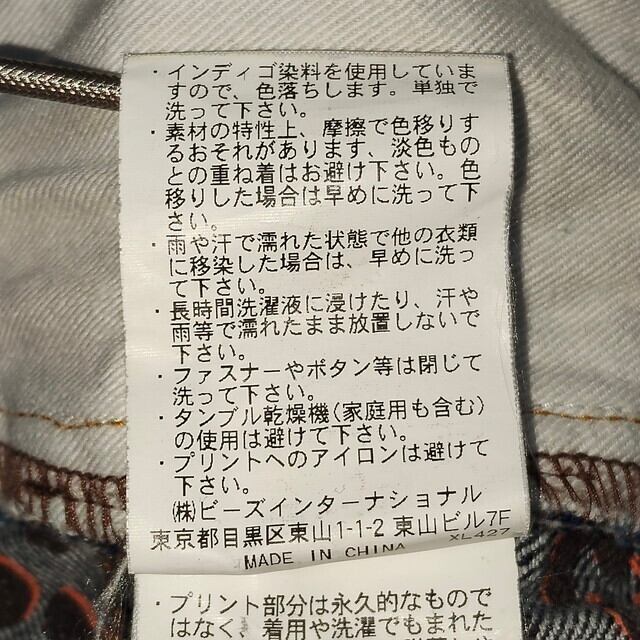 ・インディゴ染料を使用していま
すので、色落ちします。単独で
洗って下さい。
・素材の特性上、摩擦で色移りす
るおそれがあります、淡色もの
との重ね着はお避け下さい。色
移りした場合は早めに洗って下
さい。
・雨や汗で濡れた状態で他の衣類
に移染した場合は、早めに洗っ
て下さい。
・長時間洗濯液に浸けたり、汗や
雨等で濡れたまま放置しないで
下さい。
・ファスナーやボタン等は閉じて
洗って下さい。
・タンブル乾燥機(家庭用も含む)
の使用は避けて下さい。
・プリントへのアイロンは避けて
下さい。
㈱ビーズインターナショナル
東京都目黒区東山1-1-2 東山ビル7F
MADE IN CHINA XL427
・プリント部分は永久的なもので
はなく、着用や洗濯でもまれた